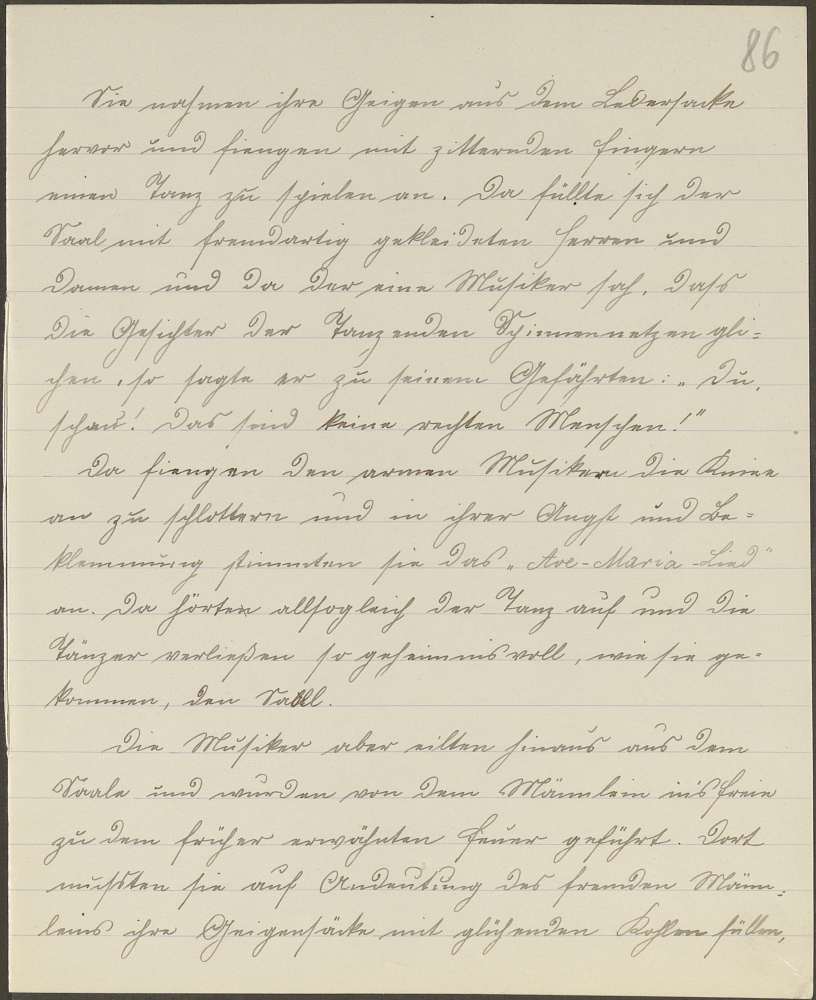 86
Sie nahmen ihre Geigen aus dem Ledersacke
hervor und fiengen mit zitternden Fingern
einen Tanz zu spielen an. Da füllte sich der
Saal mit fremdartig gekleideten Herren und
Damen und da der eine Musiker sah, dass
die Gesichter der Tanzenden Spinnennetzen gli=
chen, so sagte er zu seinem Gefährten: „Du,
schau! Das sind keine rechten Menschen!"
Da fiengen den armen Musikern die Kniee
an zu schlottern und in ihrer Angst und Be=
klemmung stimmten sie das „Ave-Maria-Lied"
an. Da hörten allsogleich der Tanz auf und die
Tänzer verließen so geheimnisvoll, wie sie ge=
kommen, den Saal.
Die Musiker aber eilten hinaus aus dem
Saale und wurden von dem Männlein in's Freie
zu dem früher erwähnten Feuer geführt. Dort
mussten sie auf Andeutung des fremden Männ=
leins ihre Geigensäcke mit glühenden Kohlen füllen,